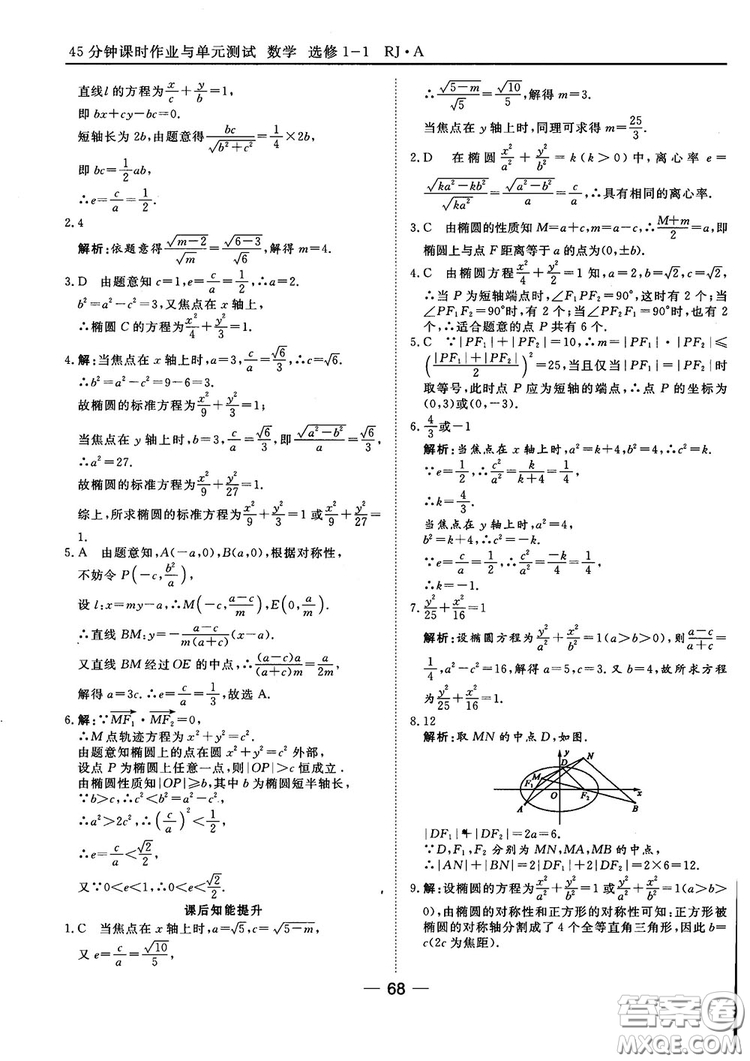 45分钟课时作业与单元测试 数学 选修1-1 RJ·A
直线l的方程为x/c+y/b=1,
即bx+cy-bc=0.
短轴长为2b,由题意得bc/√(b²+c²)=1/4×2b,
即bc=1/2ab,
∴e=c/a=1/2.
2.4
解析:依题意得√(m-2)/√m=√(6-3)/√6,解得m=4.
3.D 由题意知c=1,e=c/a=1/2,∴a=2.
b²=a²-c²=3,又焦点在x轴上,
∴椭圆C的方程为x²/4+y²/3=1.
4.解:当焦点在x轴上时,a=3,c/a=√6/3,∴c=√6.
∴b²=a²-c²=9-6=3.
故椭圆的标准方程为x²/9+y²/3=1;
当焦点在y轴上时,b=3,c/a=√6/3,即√(a²-b²)/a=√6/3,
∴a²=27.
故椭圆的标准方程为x²/9+y²/27=1.
综上,所求椭圆的标准方程为x²/9+y²/3=1或x²/9+y²/27=
1.
5.A 由题意知,A(-a,0),B(a,0),根据对称性,
不妨令P(-c,b²/a),
设l:x=my-a,∴M(-c,(a-c)/m),E(0,a/m).
∴直线BM:y=-(a-c)/(m(a+c))(x-a).
又直线BM经过OE的中点,∴(a-c)a/((a+c)m)=a/2m,
解得a=3c.∴e=c/a=1/3,故选A.
6.解:∵MF₁·MF₂=0,
∴M点轨迹方程为x²+y²=c².
由题意知椭圆上的点在圆x²+y²=c²外部,
设点P为椭圆上任意一点,则|OP|>c恒成立.
由椭圆性质知|OP|≥b,其中b为椭圆短半轴长,
∴b>c,∴c²<b²=a²-c².
∴a²>2c²,∴(c/a)²<1/2,
∴e=c/a<√2/2.
又∵0<e<1,∴0<e<√2/2.
课后知能提升
1.C 当焦点在x轴上时,a=√5,c=√(5-m),
又e=c/a=√10/5,
∴√(5-m)/√5=√10/5,∴m=3.
当焦点在y轴上时,同理可求得m=25/3.
2.D 在椭圆x²/a²+y²/b²=k(k>0)中,离心率e=
√(ka²-kb²)/√(ka²)=√(a²-b²)/a,∴具有相同的离心率.
3.C 由椭圆的性质知M=a+c,m=a-c,∴(M+m)/2=a,即
椭圆上与点F距离等于a的点为(0,±b).
4.C 由椭圆方程x²/4+y²/2=1知,a=2,b=√2,c=√2,
∴当P为短轴端点时,∠F₁PF₂=90°,这时有2个;当
∠PF₁F₂=90°时,有2个;当∠PF₂F₁=90°时,也有2
个,∴适合题意的点P共有6个.
5.C ∵|PF₁|+|PF₂|=10,∴m=|PF₁|·|PF₂|≤
((|PF₁|+|PF₂|)/2)²=25,当且仅当|PF₁|=|PF₂|时
取等号,此时点P应为短轴的端点,∴点P的坐标为
(0,3)或(0,-3).
6.4/3或-1
解析:当焦点在x轴上时,a²=k+4,b²=4,∴c²=k.
∵e=1/2,∴c²/a²=k/(k+4)=1/4,
∴k=4/3.
当焦点在y轴上时,a²=4,
b²=k+4,∴c²=-k.
∵e=c/a=1/2,∴c²/a²=-k/4=1/4,
∴k=-1.
7.y²/25+x²/16=1
解析:设椭圆方程为y²/a²+x²/b²=1(a>b>0),则(a-c)/(a+c)=
1/4,a²-c²=16,解得a=5,c=3.又b=4,故所求方程
为y²/25+x²/16=1.
8.12
解析:取MN的中点D,如图.
y
N
D
M
F₁
O
F₂
x
A
B
|DF₁|+|DF₂|=2a=6.
∵D,F₁,F₂分别为MN,AM,BN的中点,
∴|AN|+|BN|=2|DF₁|+2|DF₂|=2×6=12.
9.解:设椭圆的方程为x²/a²+y²/b²=1或y²/a²+x²/b²=1(a>b>
0),由椭圆的对称性和正方形的对称性可知:正方形被
椭圆的对称轴分割成了4个全等直角三角形,因此b=
c(2c为焦距).
68
答案圈
MXQE.COM